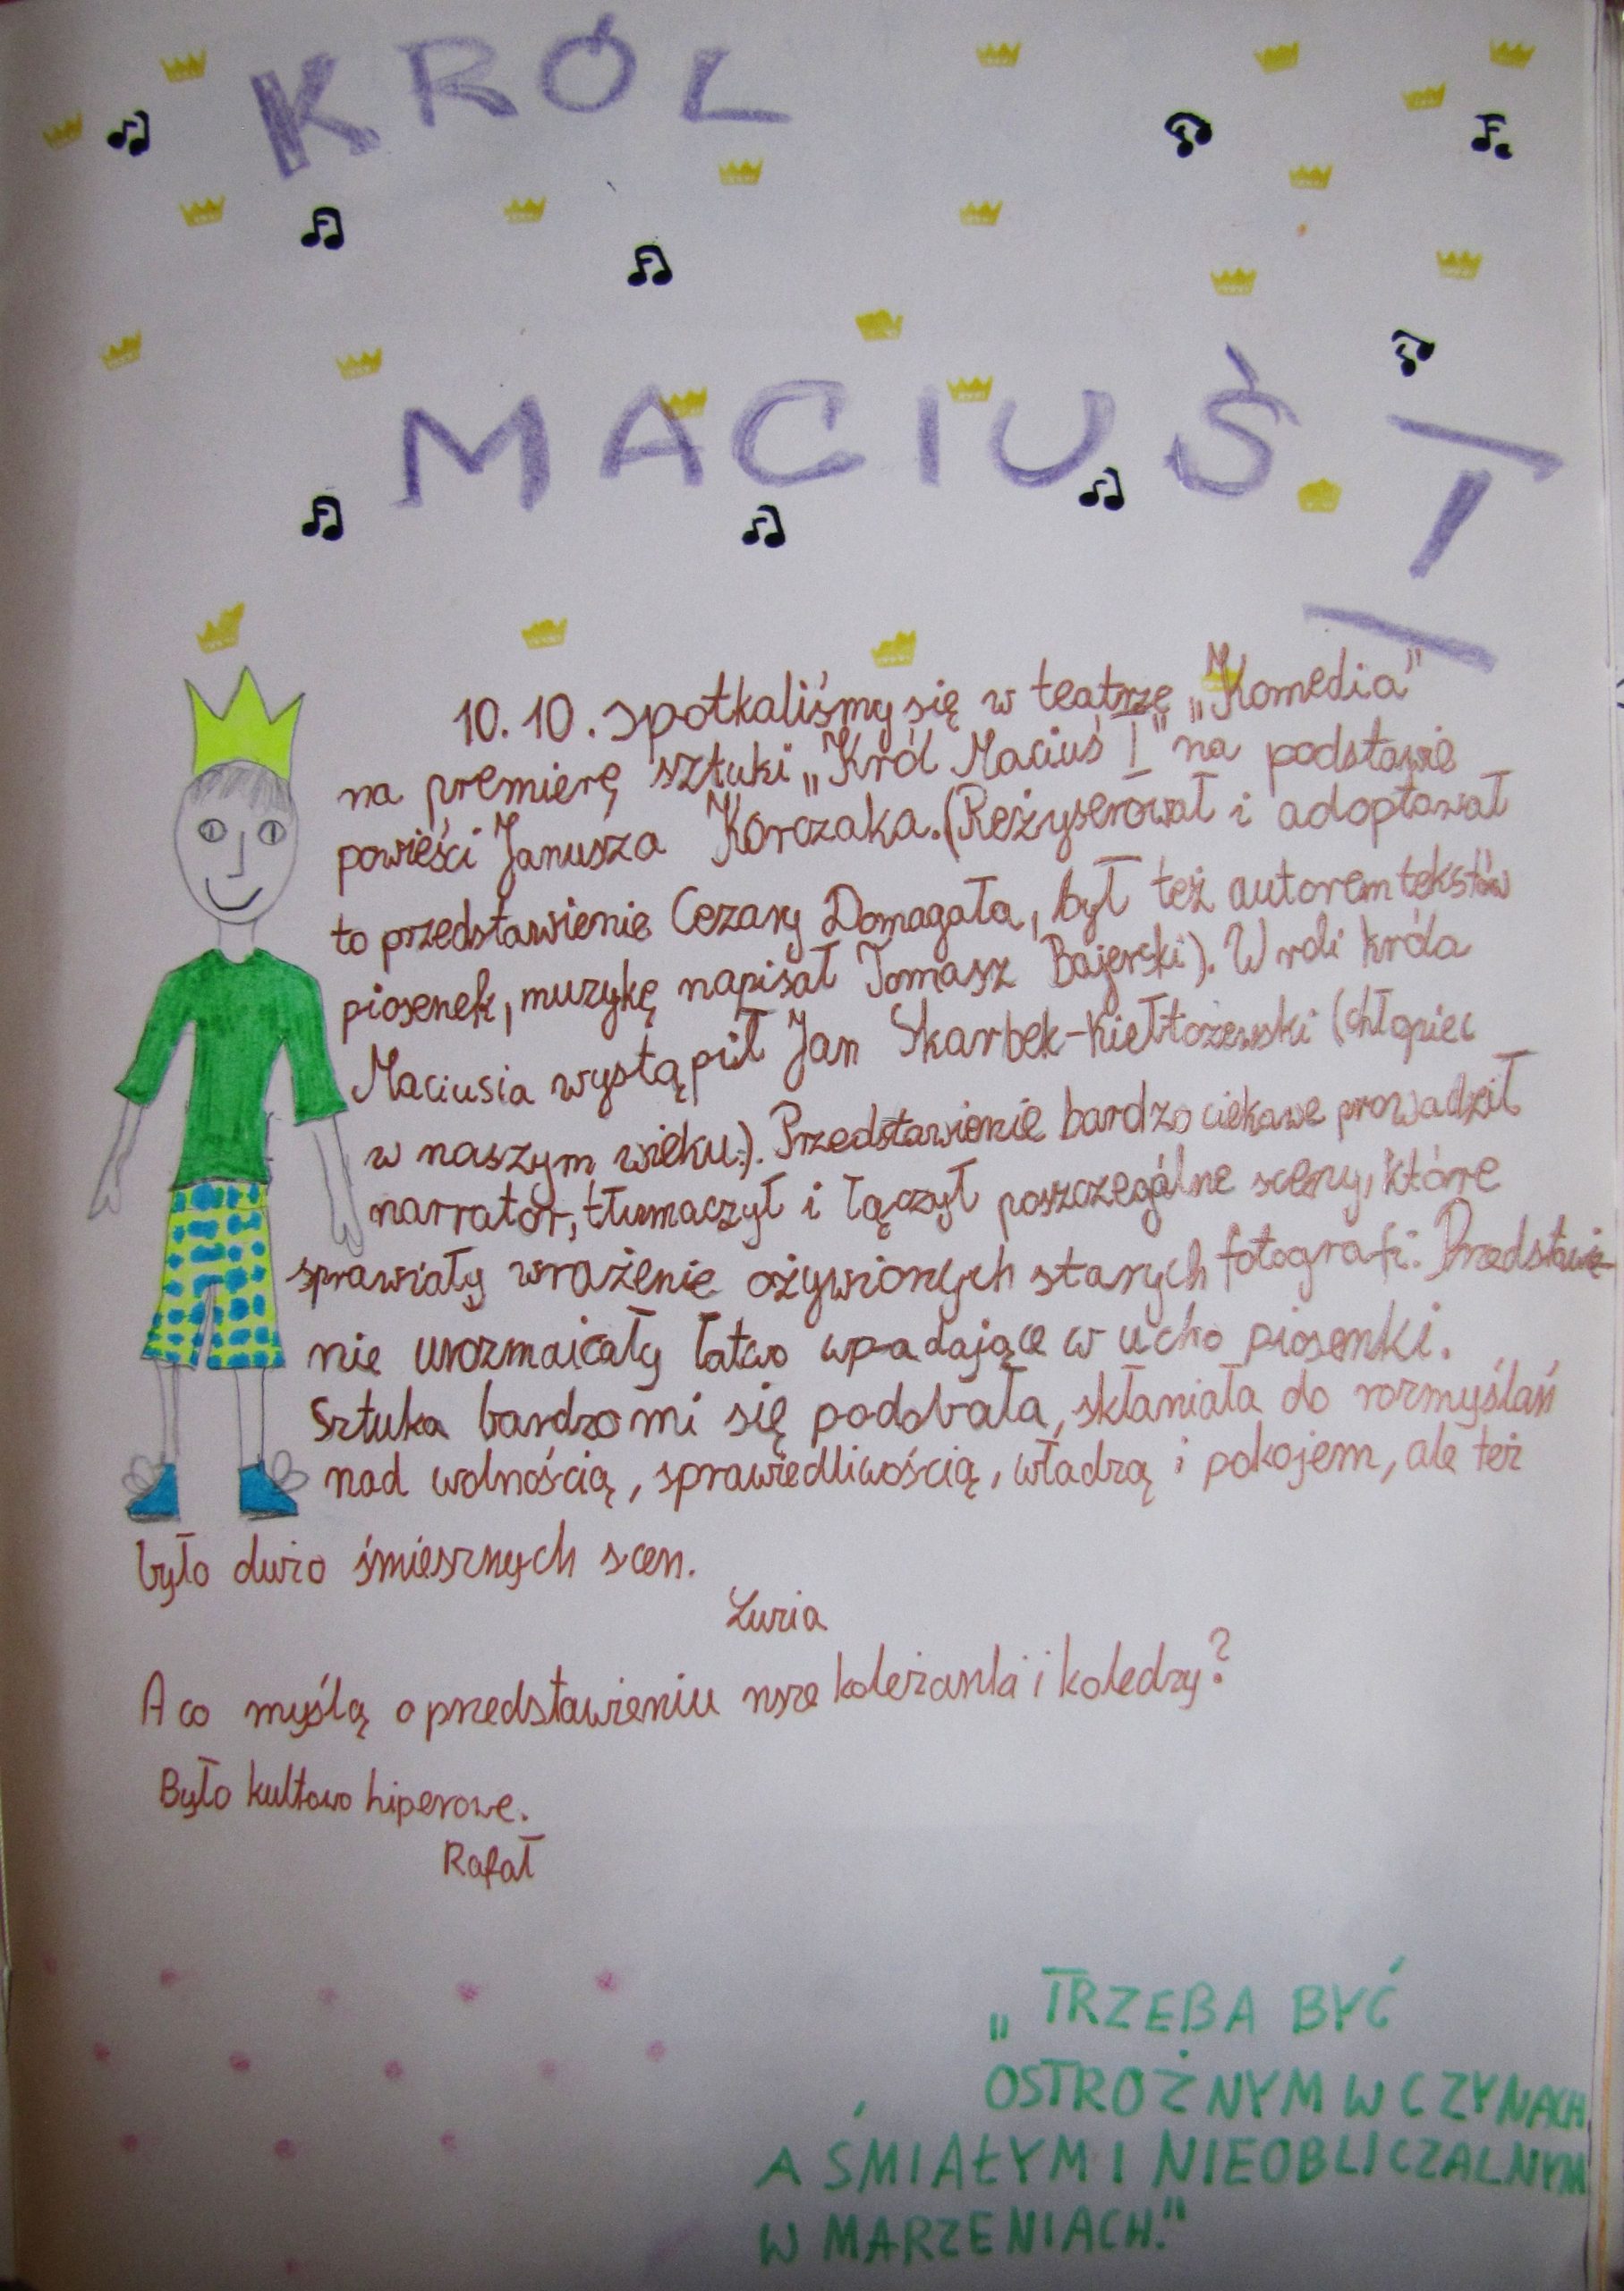 KRÓL
MACIUŚ I
10.10. spotkaliśmy się w teatrze „Komedia"
na premierę sztuki „Król Maciuś I" na podstawie
powieści Janusza Korczaka. (Reżyserował i adoptował
to przedstawienie Cezary Domagała, był też autorem tekstów
piosenek, muzykę napisał Tomasz Bajerski). W roli króla
Maciusia wystąpił Jan Skarbek-Kiełtożewski (chłopiec
w naszym wieku:). Przedstawienie bardzo ciekawe prowadził
narrator, tłumaczył i łączył poszczególne sceny, które
sprawiały wrażenie ożywionych starych fotografi. Przedstawie-
nie urozmaicały łatwo wpadające w ucho piosenki.
Sztuka bardzo mi się podobała, skłaniała do rozmyślań
nad wolnością, sprawiedliwością, władzą i pokojem, ale też
było dużo śmiesznych scen.
Luzia
A co myślą o przedstawieniu nsze koleżanki i koledzy?
Było kultowo hiperowe.
Rafał
„TRZEBA BYĆ
OSTROŻNYM W CZYNACH
A ŚMIAŁYM I NIEOBLICZALNYM
W MARZENIACH."